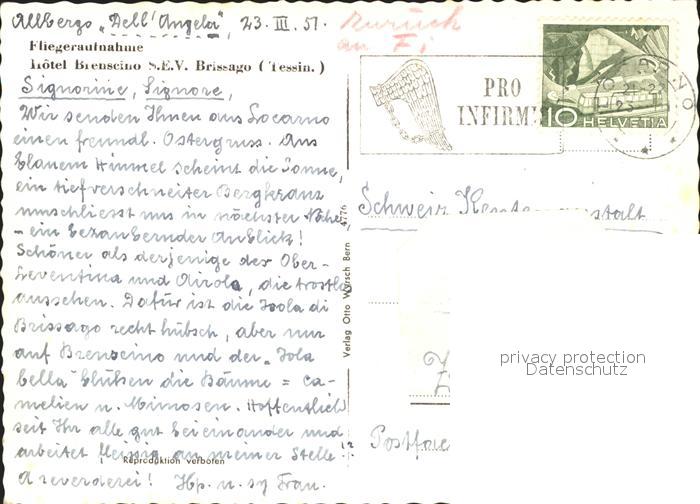 Allbergo "Dell'Angelo", 23. III. 51.
Zurück
an Fi
Fliegeraufnahme
Hôtel Brenscino S.E.V. Brissago (Tessin.)
PRO
INFIRMIS
10 HELVETIA
Signorine, Signore,
Wir senden Ihnen aus Locarno
einen freundl. Ostergruss. Aus
blauem Himmel scheint die Sonne,
ein tiefverschneiter Bergkranz
umschliesst uns in nächster Nähe
– ein bezaubernder Anblick!
Schöner als derjenige der Ober-
Leventina und Airolo, die trostlos
aussehen. Dafür ist die Isola di
Brissago recht hübsch, aber nur
auf Brenscino und der "Isola
bella" blühen die Bäume = Ca-
melien u. Mimosen. Hoffentlich
seit Ihr alle gut beieinander und
arbeitet fleissig an meiner Stelle!?
Areverderei! Hp. u. sy Frau.
Schweiz.
Verlag Otto Wyrsch Bern 4776
privacy protection
Datenschutz
Postfac
Reproduktion verboten